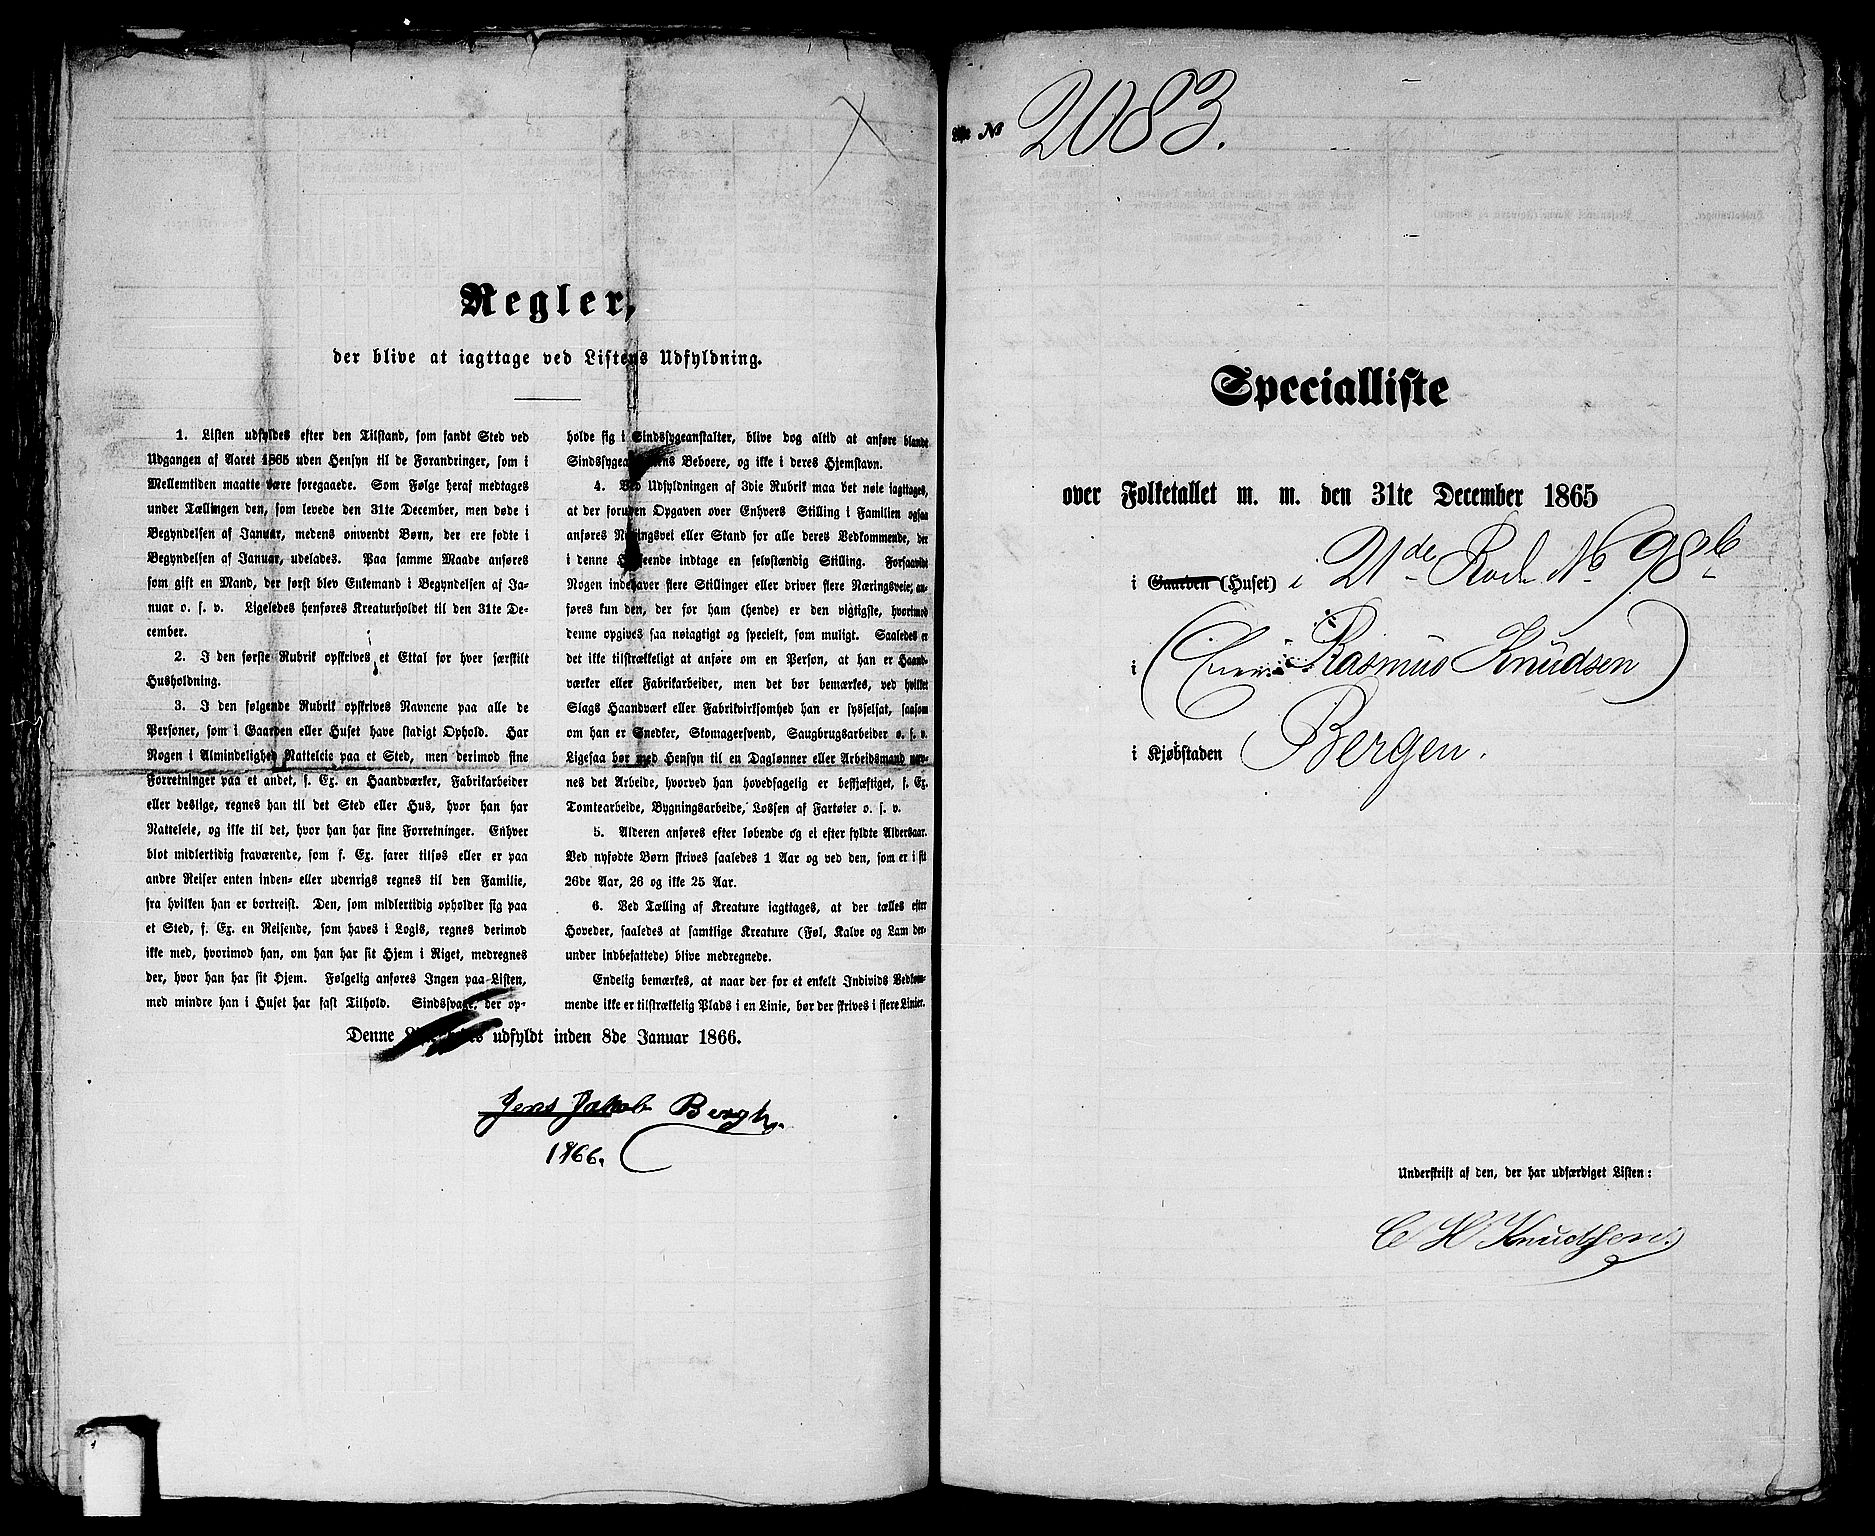 Regler,
der blive at iagttage ved Listens Udfyldning.
1. Listen udfyldes efter den Tilstand, som fandt Sted ved
Udgangen af Aaret 1865 uden Hensyn til de Forandringer, som i
Mellemtiden maatte være foregaaede. Som Følge heraf medtages
under Tællingen den, som levede den 31te December, men døde i
Begyndelsen af Januar, medens omvendt Børn, der ere fødte i
Begyndelsen af Januar, udelades. Paa samme Maade anføres
som gift en Mand, der først blev Enkemand i Begyndelsen af Ja-
nuar o. s. v. Ligeledes henføres Kreaturholdet til den 31te De-
cember.
2. I den første Rubrik opskrives et Ettal for hver særskilt
Husholdning.
3. I den følgende Rubrik opskrives Navnene paa alle de
Personer, som i Gaarden eller Huset have stadigt Ophold. Har
Nogen i Almindelighed Natteleie paa et Sted, men derimod sine
Forretninger paa et andet, s. Ex. en Haandværker, Fabrikarbeider
eller deslige, regnes han til det Sted eller Hus, hvor han har
Natteleie, og ikke til det, hvor han har sine Forretninger. Enhver
blot midlertidig fraværende, som s. Ex. farer tilsøs eller er paa
andre Reiser enten inden- eller udenrigs regnes til den Familie,
fra hvilken han er bortreist. Den, som midlertidig opholder sig paa
et Sted, s. Ex. en Reisende, som haves i Logis, regnes derimod
ikke med, hvorimod han, om han har sit Hjem i Riget, medregnes
der, hvor han har sit Hjem. Følgelig anføres Ingen paa Listen,
med mindre han i Huset har fast Tilhold. Sindssvage, der op-
holde sig i Sindssygeanstalter, blive dog altid at anføre blandt
Sindssygeanstaltens Beboere, og ikke i deres Hjemstavn.
4. Ved Udfyldningen af 3die Rubrik maa det nøie iagttages,
at der foruden Opgaven over Enhvers Stilling i Familien ogsaa
anføres Næringsvei eller Stand for alle deres Vedkommende, der
i denne Henseende indtage en selvstændig Stilling. Forsaavidt
Nogen indehaver flere Stillinger eller driver flere Næringsveie, an-
føres kun den, der for ham (hende) er den vigtigste, hvorimod
denne opgives saa nøiagtigt og specielt, som muligt. Saaledes er
det ikke tilstrækkeligt at anføre om en Person, at han er Haand-
værker eller Fabrikarbeider, men det bør bemærkes, ved hvilket
Slags Haandværk eller Fabrikvirksomhed han er sysselsat, saasom
om han er Snedker, Skomagersvend, Saugbrugsarbeider o. s. v.
Ligesaa bør med Hensyn til en Daglønner eller Arbeidsmand næv-
nes det Arbeide, hvorved han hovedsagelig er beskjæftiget, s. Ex.
Tomtearbeide, Bygningsarbeide, Lossen af Fartøier o. s. v.
5. Alderen anføres efter løbende og ei efter fyldte Aldersaar.
Ved nyfødte Børn skrives saaledes 1 Aar og ved den, som er i sit
26de Aar, 26 og ikke 25 Aar.
6. Ved Tælling af Kreature iagttages, at der tælles efter
Hoveder, saaledes at samtlige Kreature (Føl, Kalve og Lam der-
under indbefattede) blive medregnede.
Endelig bemærkes, at naar der for et enkelt Individs Vedkom-
mende ikke er tilstrækkelig Plads i en Linie, bør der skrives i flere Linier.
Denne udfyldt inden 8de Januar 1866.
Jens Jakob Bergh.
1866.
No 2083.
Specialliste
over Folketallet m. m. den 31te December 1865
i Gaarden (Huset) i 21de Rode No 98b
i ( Rasmus Knudsen )
i Kjøbstaden Bergen.
Underskrift af den, der har udfærdiget Listen:
C H Knudsen